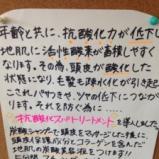 年齢と共に、抗酸化力が低下し
地肌に活性酸素が蓄積しやすく
なります。その為、頭皮が酸化した
状態になり、毛髪も疎水化が引き起こ
これがパサつき、ツヤの低下につながり
ます。それを防ぐ為に……
抗酸化スパトリートメントを導入しました
炭酸シャンプーで頭皮をマッサージした後に、
頭皮保護成分とコラーゲンを含んだ